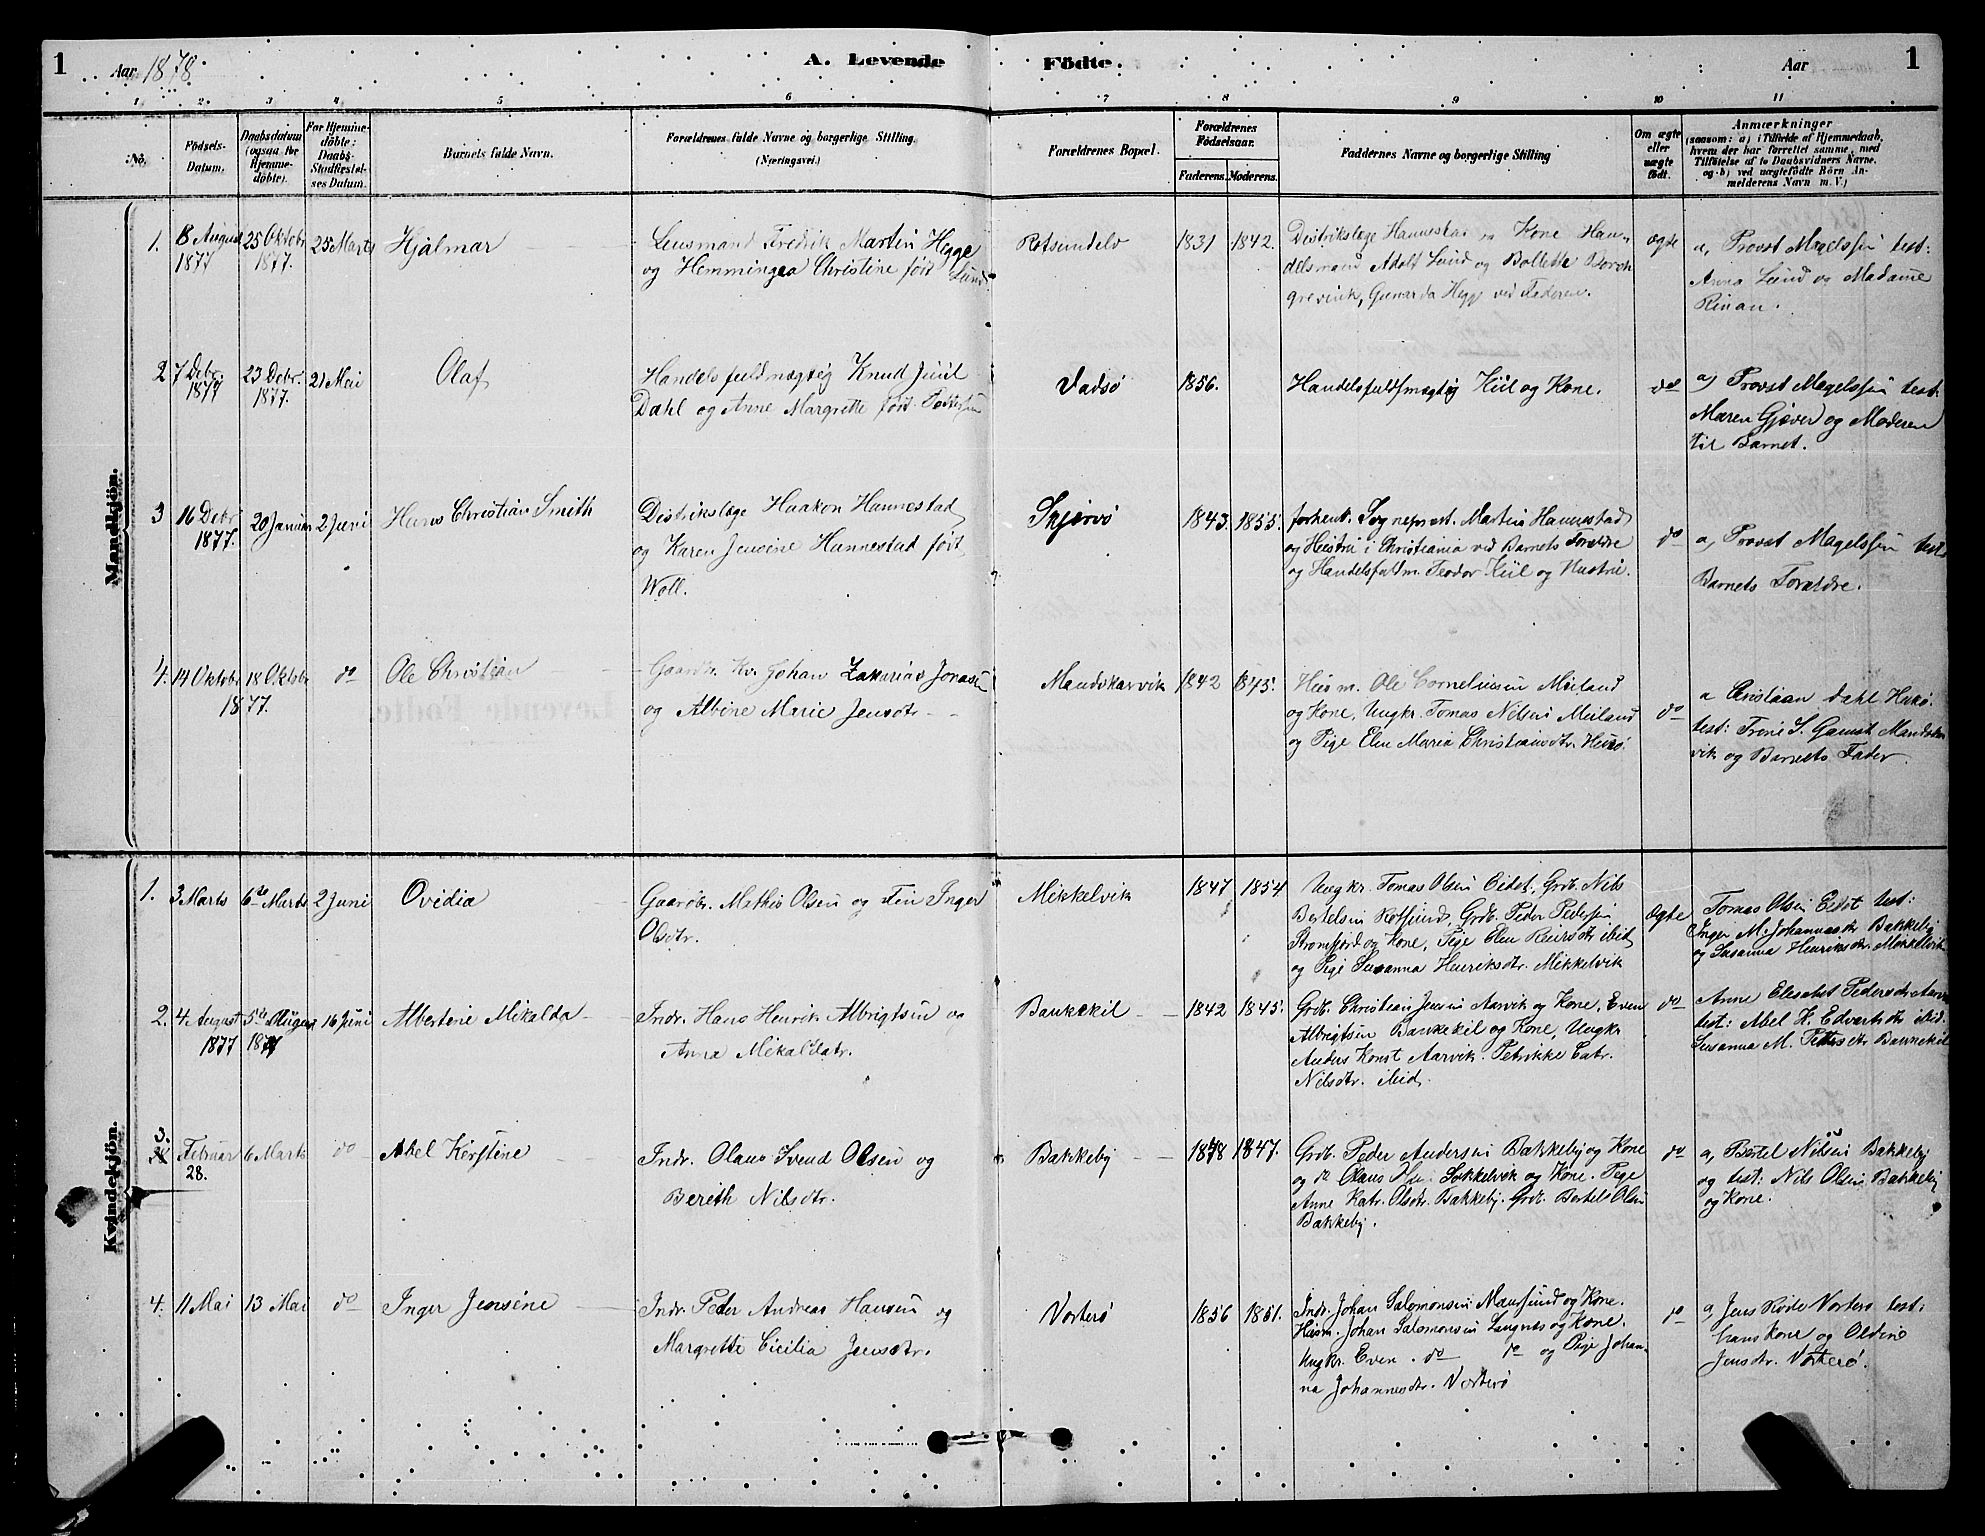 1 Aar 1878 A. Levende Födte. Aar 1
1 2 3 4 5 6 7 8 9 10 11
No.
Födsels-
Datum.
Daabsdatum
(ogsaa for
Hjemme-
döbte).
For Hjemme-
döbte:
Daabs-
Stadfæstel-
ses Datum.
Barnets fulde Navn.
Forældrenes fulde Navne og borgerlige Stilling.
(Næringsvei.)
Forældrenes Bopæl.
Forældrenes
Födselsaar.
Faderens. Moderens.
Faddernes Navne og borgerlige Stilling
Om ægte
eller
uægte
födt.
Anmærkninger
(saasom: a) i Tilfælde af Hjemmedaab,
hvem der har forrettet samme, med
Tilföielse af to Daabsvidners Navne,
og b) ved uægtefödte Börn An-
melderens Navn m. V.)
Mandkjön.
1.
8 August
1877
25 Oktobr
1877.
25 Marts
Hjalmar
Lensmand Fredrik Martin Hegge
og Hemmingea Christine født Lund
Rotsundelv
1831
1842.
Distriktslæge Hannestad og Kone Han-
delsmand Adolf Lund og Bollette Borch
grevink, Gunarda Hegge ved Faderen.
ægte
a, Provst Magelssen test:
Anna Lund og Madame
Rinan.
2
7 Debr.
1877
23 Debr.
1877.
21 Mai
Olaf
Handelsfuldmægtig Knud Juul
Dahl og Anne Margrette født
Vadsø
1856.
Handelsfuldmægtig Kiil og Kone.
do
a, Provst Magelssen test.
Maren Gjæver og Moderen
til Barnet.
3
16 Debr
1877.
20 Januar
2 Juni
Hans Christian Smith
Distriktslæge Haakon Hannestad
og Karen Jensine Hannestad født
Woll.
Skjervø
1843.
1855.
forhent. Sogneprest. Martin Hannestad
og Hustru i Christiania ved Barnets Forældre
og Handelsfuldm. Teodor Kiil og Hustru.
do
a, Provst Magelssen test
Barnets Forældre.
4.
14 Oktobr
18 Oktobr
1877.
do
Ole Christian
Gaardbr. Kv. Johan Zakarias Jonasen
og Albine Marie Jensdtr
Mandskarvik
1842
1845.
Husm. Ole Corneliusen Meiland
og Kone, Ungkr. Tomas Nilsen Meiland
og Pige Elen Maria Christiansdtr. Hukø.
do
a Cristian Dahl Hukø.
test: Trine S. Gamst Mandskar
vik og Barnets Fader.
Kvindekjön.
1.
3 Marts
6te Marts
2 Juni
Ovidia
Gaardbr. Mathis Olsen og Fin Inger
Olsdtr.
Mikkelvik
1847
1854
Ungkr. Tomas Olsen Eidet, Grdb. Nils
Bertelsen Rotsund, Grdb. Peder Pedersen
Straumfjord og Kone, Pige Elen Reiersdtr ibid
og Pige Susanna Henriksdtr. Mikkelvik
Ægte
Tomas Olsen Eidet test:
Inger M. Johannesdtr Bakkeby
og Susanna Henriksdtr. Mikkelvik
2.
4 August
1877
5te August
1877
16 Juni
Albertine Mikalda
Indr. Hans Henrik Albrigtsen og
Anna Mikalsdtr.
Bankekil
1842
1845.
Grdb. Christian Jensen Aarvik og Kone, Even
Albrigtsen Bankekil og Kone, Ungkr
Anders Konst Aarvik. Petrikke Catr.
Nilsdtr. ibid.
do
Anne Elesabet Pedersdtr Aarvik
test: Abel K. Edvartsdtr ibid.
Susanna M. Pettersdtr Bankekil
3.
Februar
28.
6 Marts
do
Abel Kerstine
Indr. Olaus Svend Olsen og
Bereth Nilsdtr.
Bakkeby
1848
1847.
Grdb. Peder Andersen Bakkeby og Kone
og do Olaus Sokkelvik og Kone. Pige
Anne Katr. Olsdtr. Bakkeby. Grdb. Bertel Olsen
Bakkeby.
do
a, Bertel Nilsen Bakkeby
og test: Nils Olsen Bakkeby
og Kone.
4.
11 Mai
13 Mai
do
Inger Jensine
Indr. Peder Andreas Hansen og
Margrette Cicilia Jensdtr.
Vorterø
1856
1851.
Indr. Johan Salomonsen Maursund og Kone.
Husm. Johan Salomonsen Langnes og Kone.
Ungkr. Even do do og Pige Johan-
na Johannesdtr. Vorterø
do
a, Jens Røde Vorterø test:
hans Kone og Oldine
Jensdtr. Vorterø.